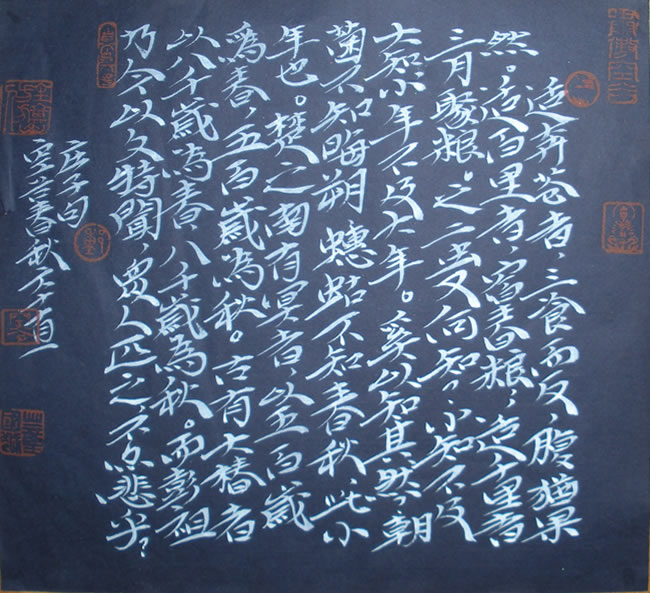 适莽苍者,三食而反,腹猶果
然。适百里者,宿舂粮,适千里者
三月聚粮。之二虫又何知。小知不及
大知小年不及大年。奚以知其然,朝
菌不知晦朔,蟪蛄不知春秋,此小
年也。楚之南有冥者,以五百歲
爲春,五百歲为秋。古有大椿者
以八千歲为春,八千歲为秋。而彭祖
乃今以久特聞,衆人匹之,不亦悲乎?
庄子曰
春秋